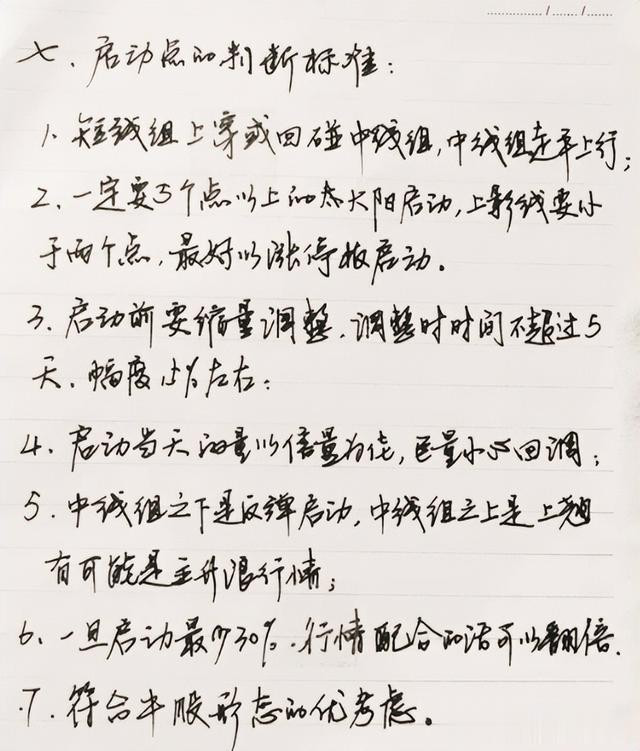 七、启动点的判断标准:
1、短线组上穿或回碰中线组,中线组走平上行;
2、一定要5个点以上的大阳启动,上影线要小
于两个点,最好以涨停板启动。
3、启动前要缩量调整,调整时时间不超过5
天、幅度15%左右;
4、启动当天的量以倍量为佳,巨量小心回调;
5、中线组之下是反弹启动,中线组之上是上翘
有可能是主升浪行情;
6、一旦启动最少30%,行情配合的话可以翻倍.
7、符合牛股形态的优考虑。